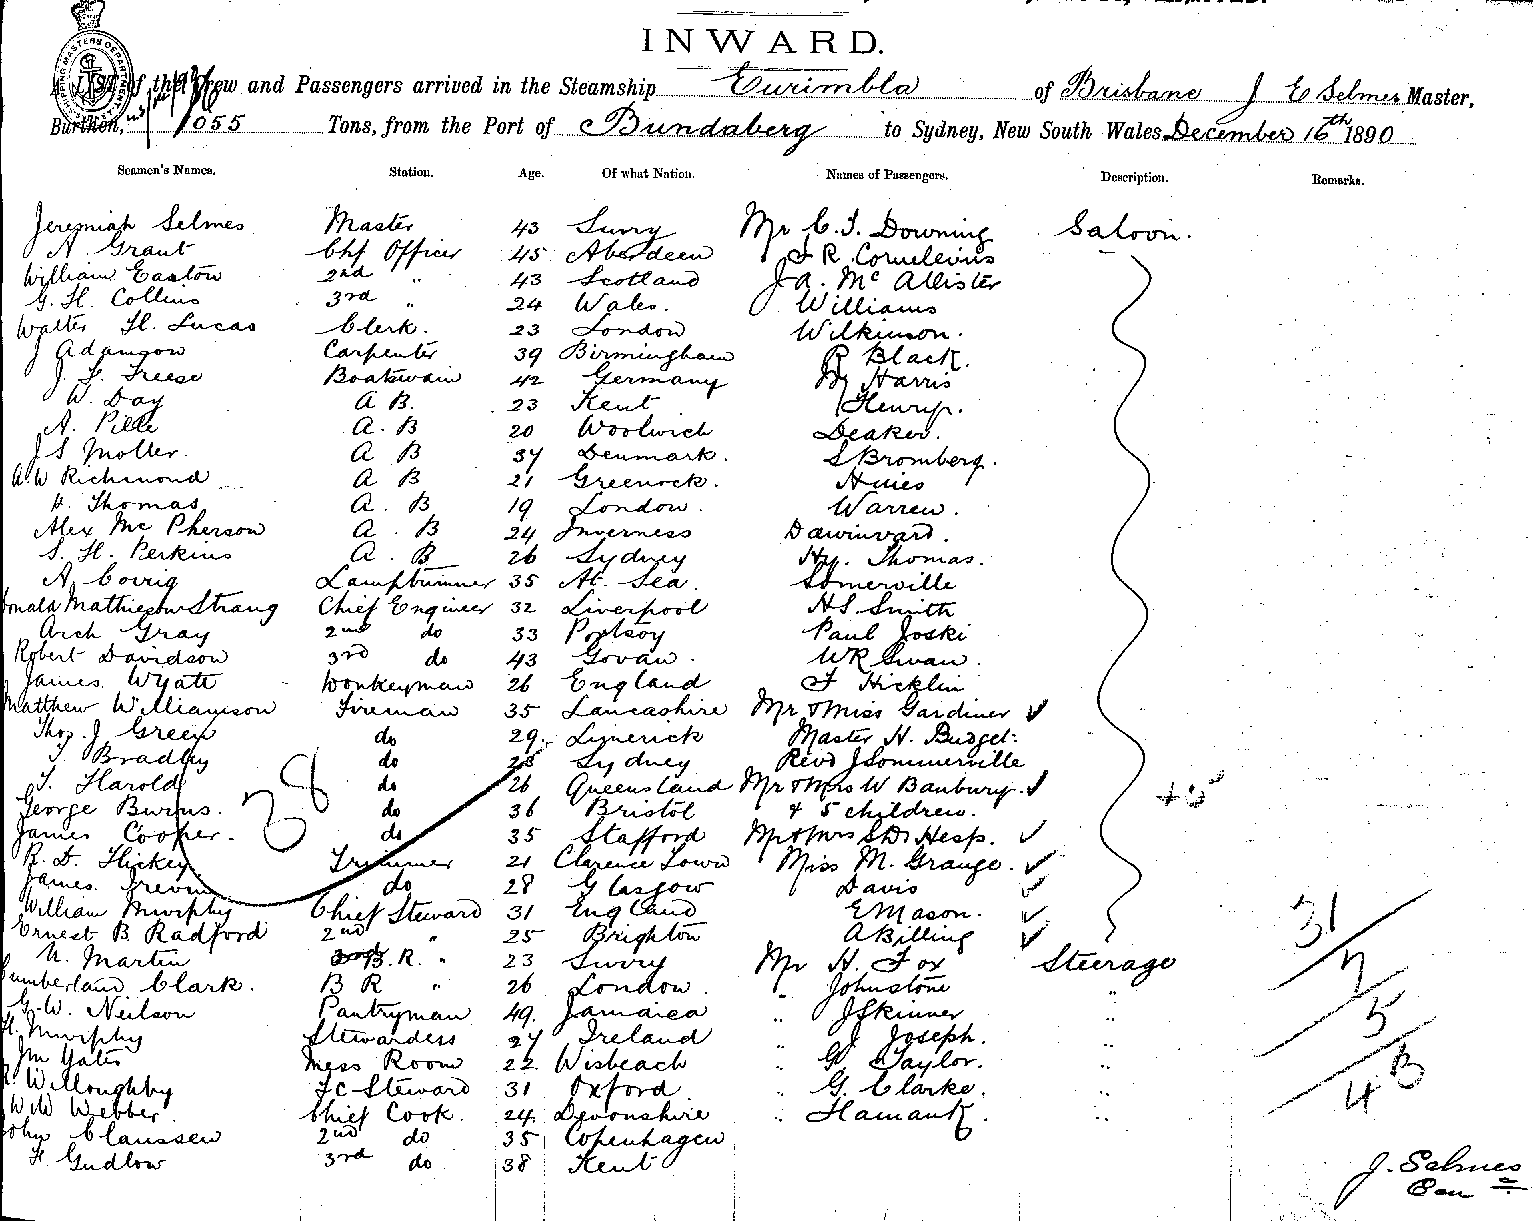 INWARD.
A LIST of the Crew and Passengers arrived in the Steamship Eurimbla of Brisbane J E Selmes Master,
Burthen, 1055 Tons, from the Port of Bundaberg to Sydney, New South Wales December 16th 1890
Seamen's Names. Station. Age. Of what Nation. Names of Passengers. Description. Remarks.
Jeremiah Selmes Master 43 Surry Mr C. J. Downing Saloon.
A Grant Chf Officer 45 Aberdeen R Cornelevius
William Easton 2nd " 43 Scotland J A. Mc Allister
G. H. Collins 3rd " 24 Wales. Williams
Walter H. Lucas Clerk. 23 London Wilkinson.
J Adamson Carpenter 39 Birmingham R Black.
J. F. Freese Boatswain 42 Germany Hy Harris
W. Day A B. 23 Kent Henry.
A. Pille A. B 20 Woolwich Deaker.
J S Moller. A B 37 Denmark. S Bromberg.
A W Richmond A B 21 Greenock. Huies
H. Thomas A. B 19 London. Warren.
Alex Mc Pherson A. B 24 Inverness Dawinvard.
S. H. Perkins A. B 26 Sydney Hy. Thomas.
A, Corrig Lamptrimmer 35 At. Sea. Somerville
Donald Mathieson Strang Chief Engineer 32 Liverpool H S Smith
Arch Gray 2nd do 33 Portsoy Paul Joski
Robert Davidson 3rd do 43 Govan. W R Swan.
James Wyate Donkeyman 26 England F Hicklin
Matthew Williamson Fireman 35 Lancashire Mr & Miss Gardiner ✓
Thos J Green do 29 Limerick Master H. Budget.
T. Bradley do 23 Sydney Revd J Sommerville
T. Harold do 26 Queensland Mr & Mrs W Banbury. ✓
George Burns. do 36 Bristol & 5 children.
James Cooper. do 35 Stafford Mr & Mrs S D Hesp. ✓
R. D. Hickey Trimmer 21 Clarence Town Miss M. Grange. ✓
James. Trevin do 28 Glasgow Davis ✓
William Murphy Chief Steward 31 England E Mason. ✓
Ernest B. Radford 2nd " 25 Brighton A Billing ✓
N. Martin B. R. " 23 Surry Mr H. Fox Steerage
Cumberland Clark. B R " 26 London. " Johnstone "
G. W. Neilson Pantryman 49. Jamaica " J Skinner "
H. Murphy Stewardess 27 Ireland " J Joseph. "
Jm Yates Mess Room 22 Wisbeach " G Taylor. "
R. Willoughby F C Steward 31 Oxford " G. Clarke. "
W W Webber Chief Cook. 24 Devonshire " Hamank. "
John Claussen 2nd do 35 Copenhagen
H Gudlow 3rd do 38 Kent
38
31
7
5
43
J. Selmes